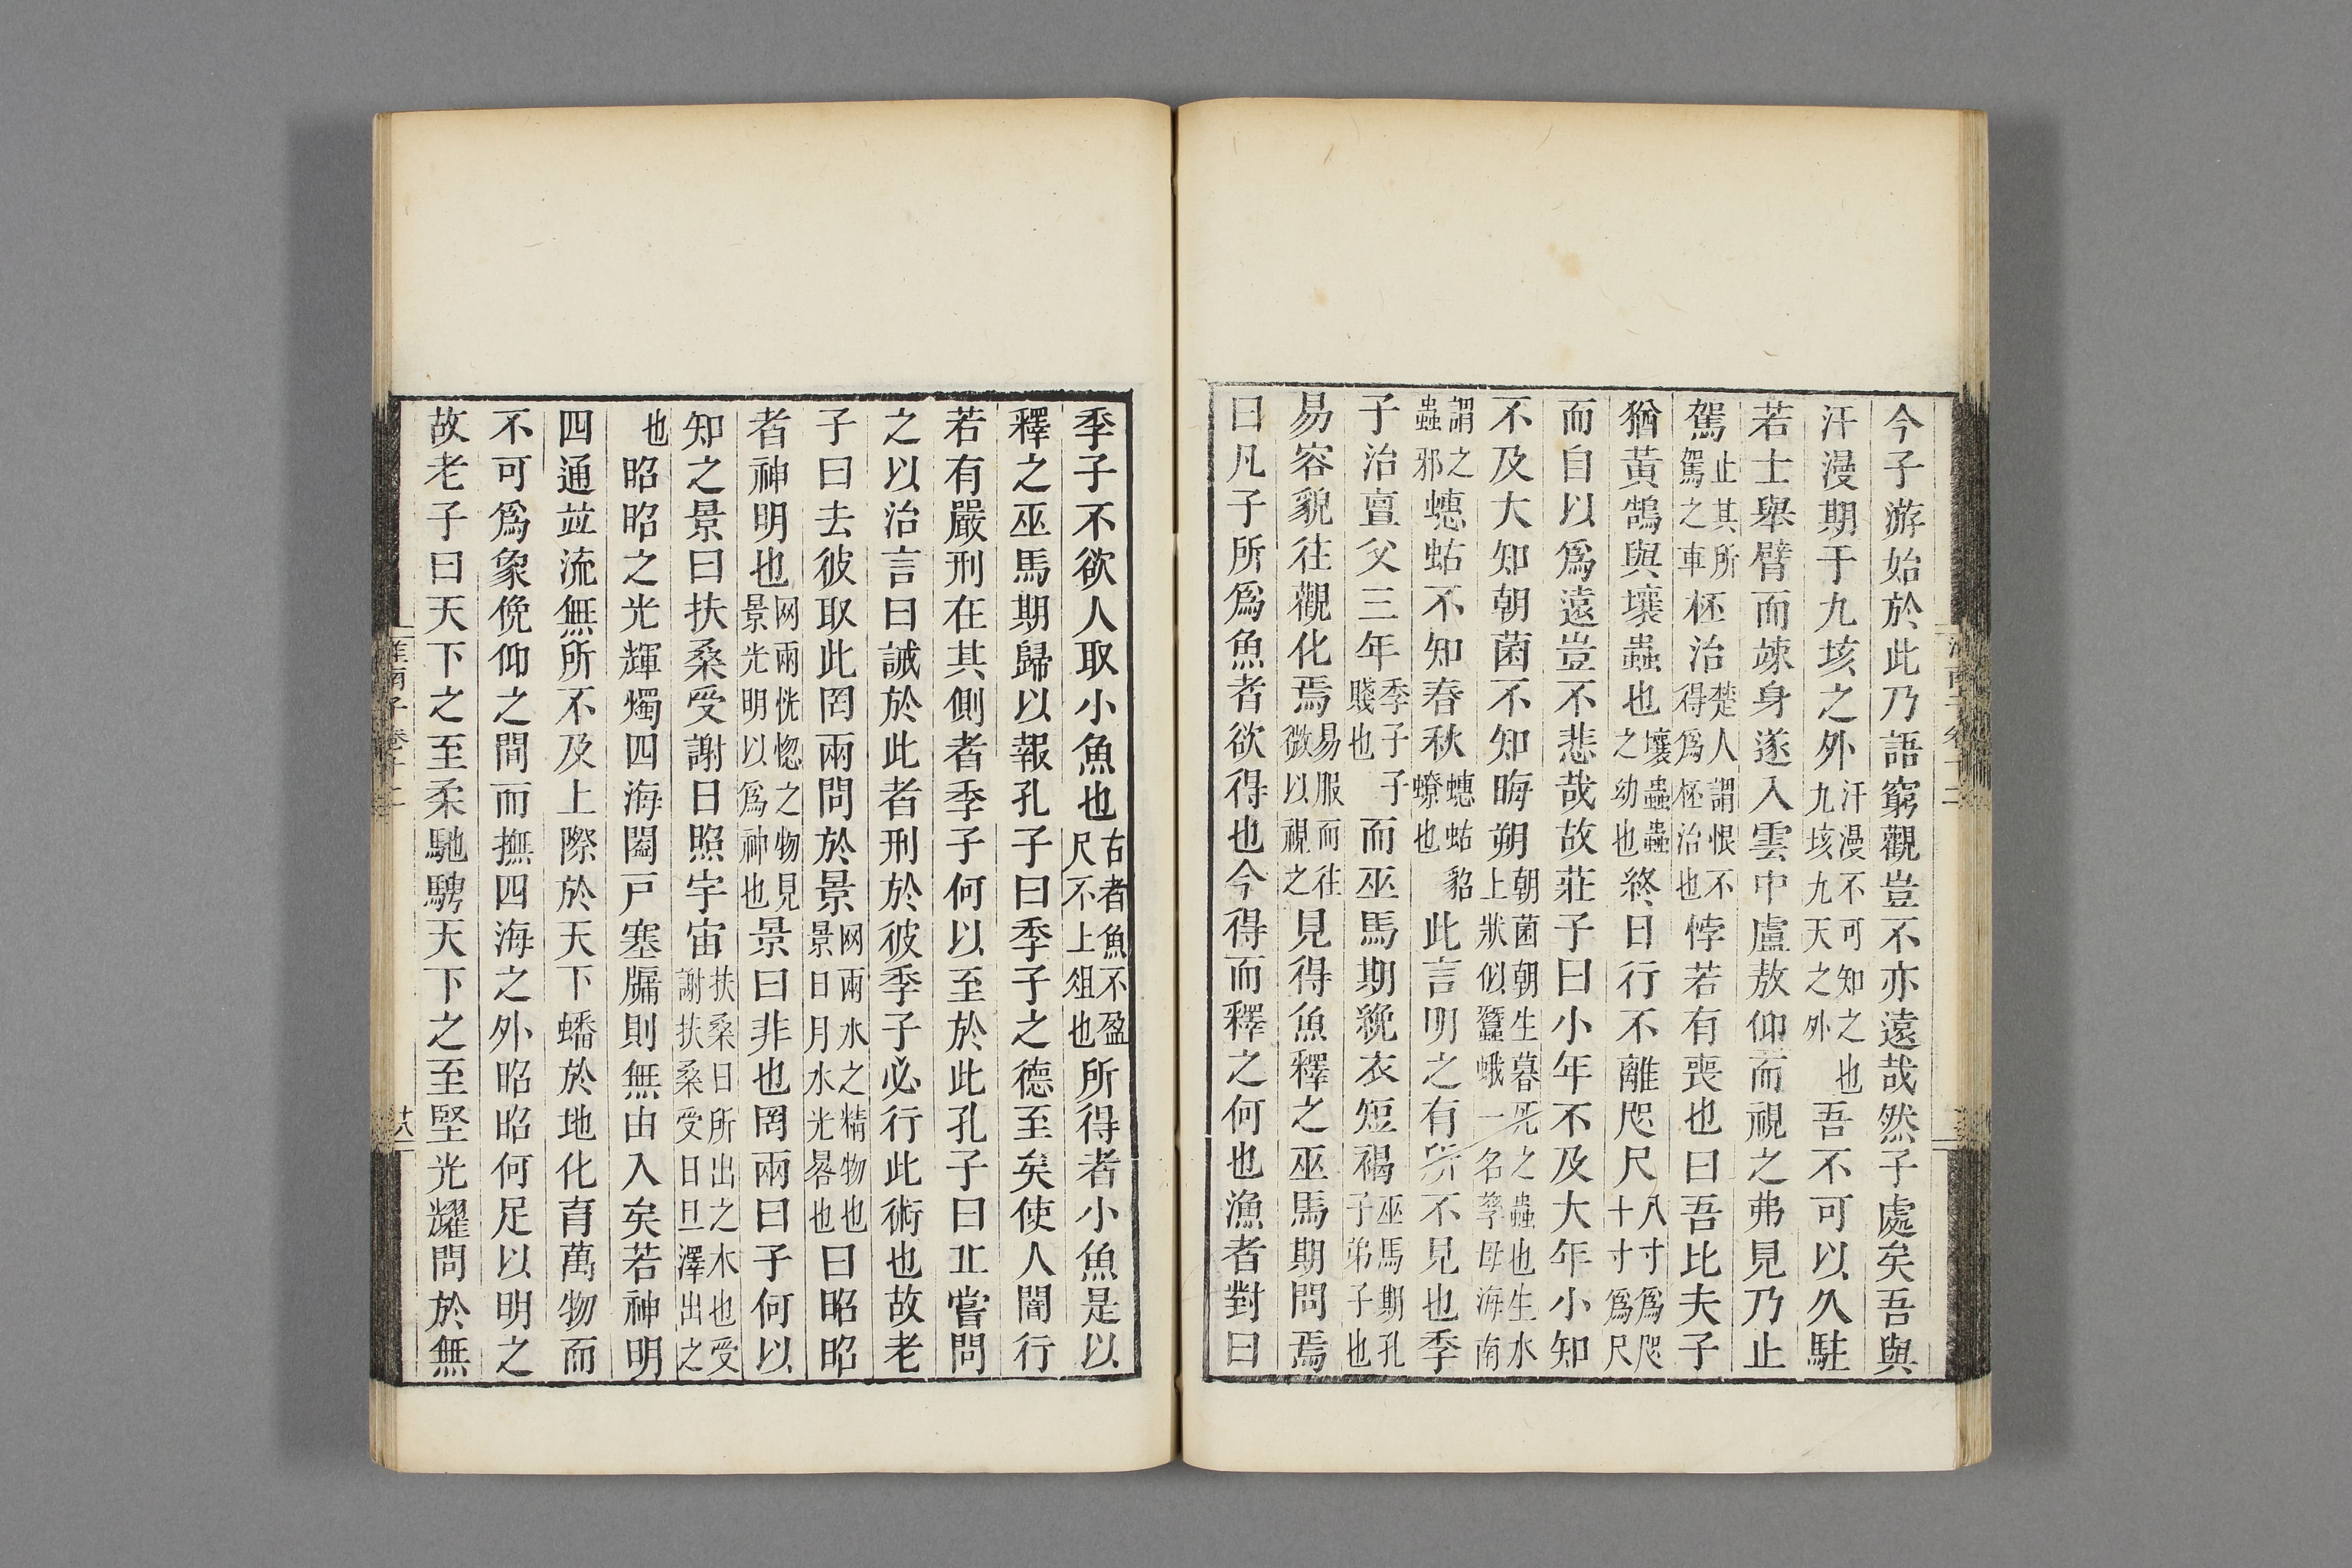 今子游始於此乃語窮觀豈不亦遠哉然子處矣吾與
汗漫期于九垓之外汗漫不可知之也九垓九天之外吾不可以久駐
若士舉臂而竦身遂入雲中盧敖仰而視之弗見乃止
駕止其所駕之車柸治楚人謂恨不得爲柸治也悖若有喪也曰吾比夫子
猶黃鵠與壤蟲也壤蟲蟲之幼也終日行不離咫尺八寸爲咫十寸爲尺
而自以爲遠豈不悲哉故莊子曰小年不及大年小知
不及大知朝菌不知晦朔朝菌朝生暮死之蟲也生水上狀似蠶蛾一名孳母海南
謂之蟲邪蟪蛄不知春秋蟪蛄貂蟟也此言明之有所不見也季
子治亶父三年季子子賤也而巫馬期絻衣短褐巫馬期孔子弟子也
易容貌往觀化焉易服而往微以視之見得魚釋之巫馬期問焉
曰凡子所爲魚者欲得也今得而釋之何也漁者對曰
季子不欲人取小魚也古者魚不盈尺不上俎也所得者小魚是以
釋之巫馬期歸以報孔子曰季子之德至矣使人闇行
若有嚴刑在其側者季子何以至於此孔子曰丘嘗問
之以治言曰誡於此者刑於彼季子必行此術也故老
子曰去彼取此罔兩問於景网兩水之精物也景日月水光晷也曰昭昭
者神明也网兩恍惚之物見景光明以爲神也景曰非也罔兩曰子何以
知之景曰扶桑受謝日照宇宙扶桑日所出之木也受謝扶桑受日旦澤出之
也昭昭之光輝燭四海闔戶塞牖則無由入矣若神明
四通竝流無所不及上際於天下蟠於地化育萬物而
不可爲象俛仰之間而撫四海之外昭昭何足以明之
故老子曰天下之至柔馳騁天下之至堅光耀問於無
淮南子卷十二
十八